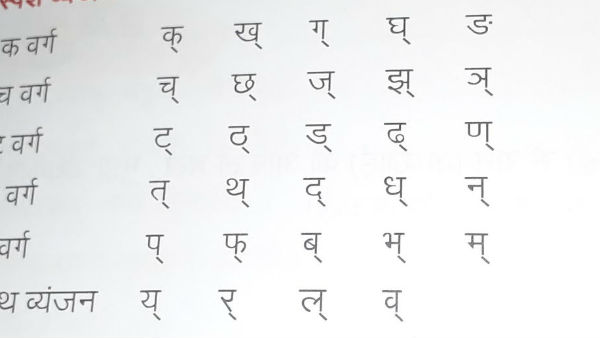 क वर्ग क् ख् ग् घ् ङ
च वर्ग च् छ् ज् झ् ञ्
वर्ग ट् ठ् ड् ढ् ण्
वर्ग त् थ् द् ध् न्
वर्ग प् फ् ब् भ् म्
थ व्यंजन य् र् ल् व्